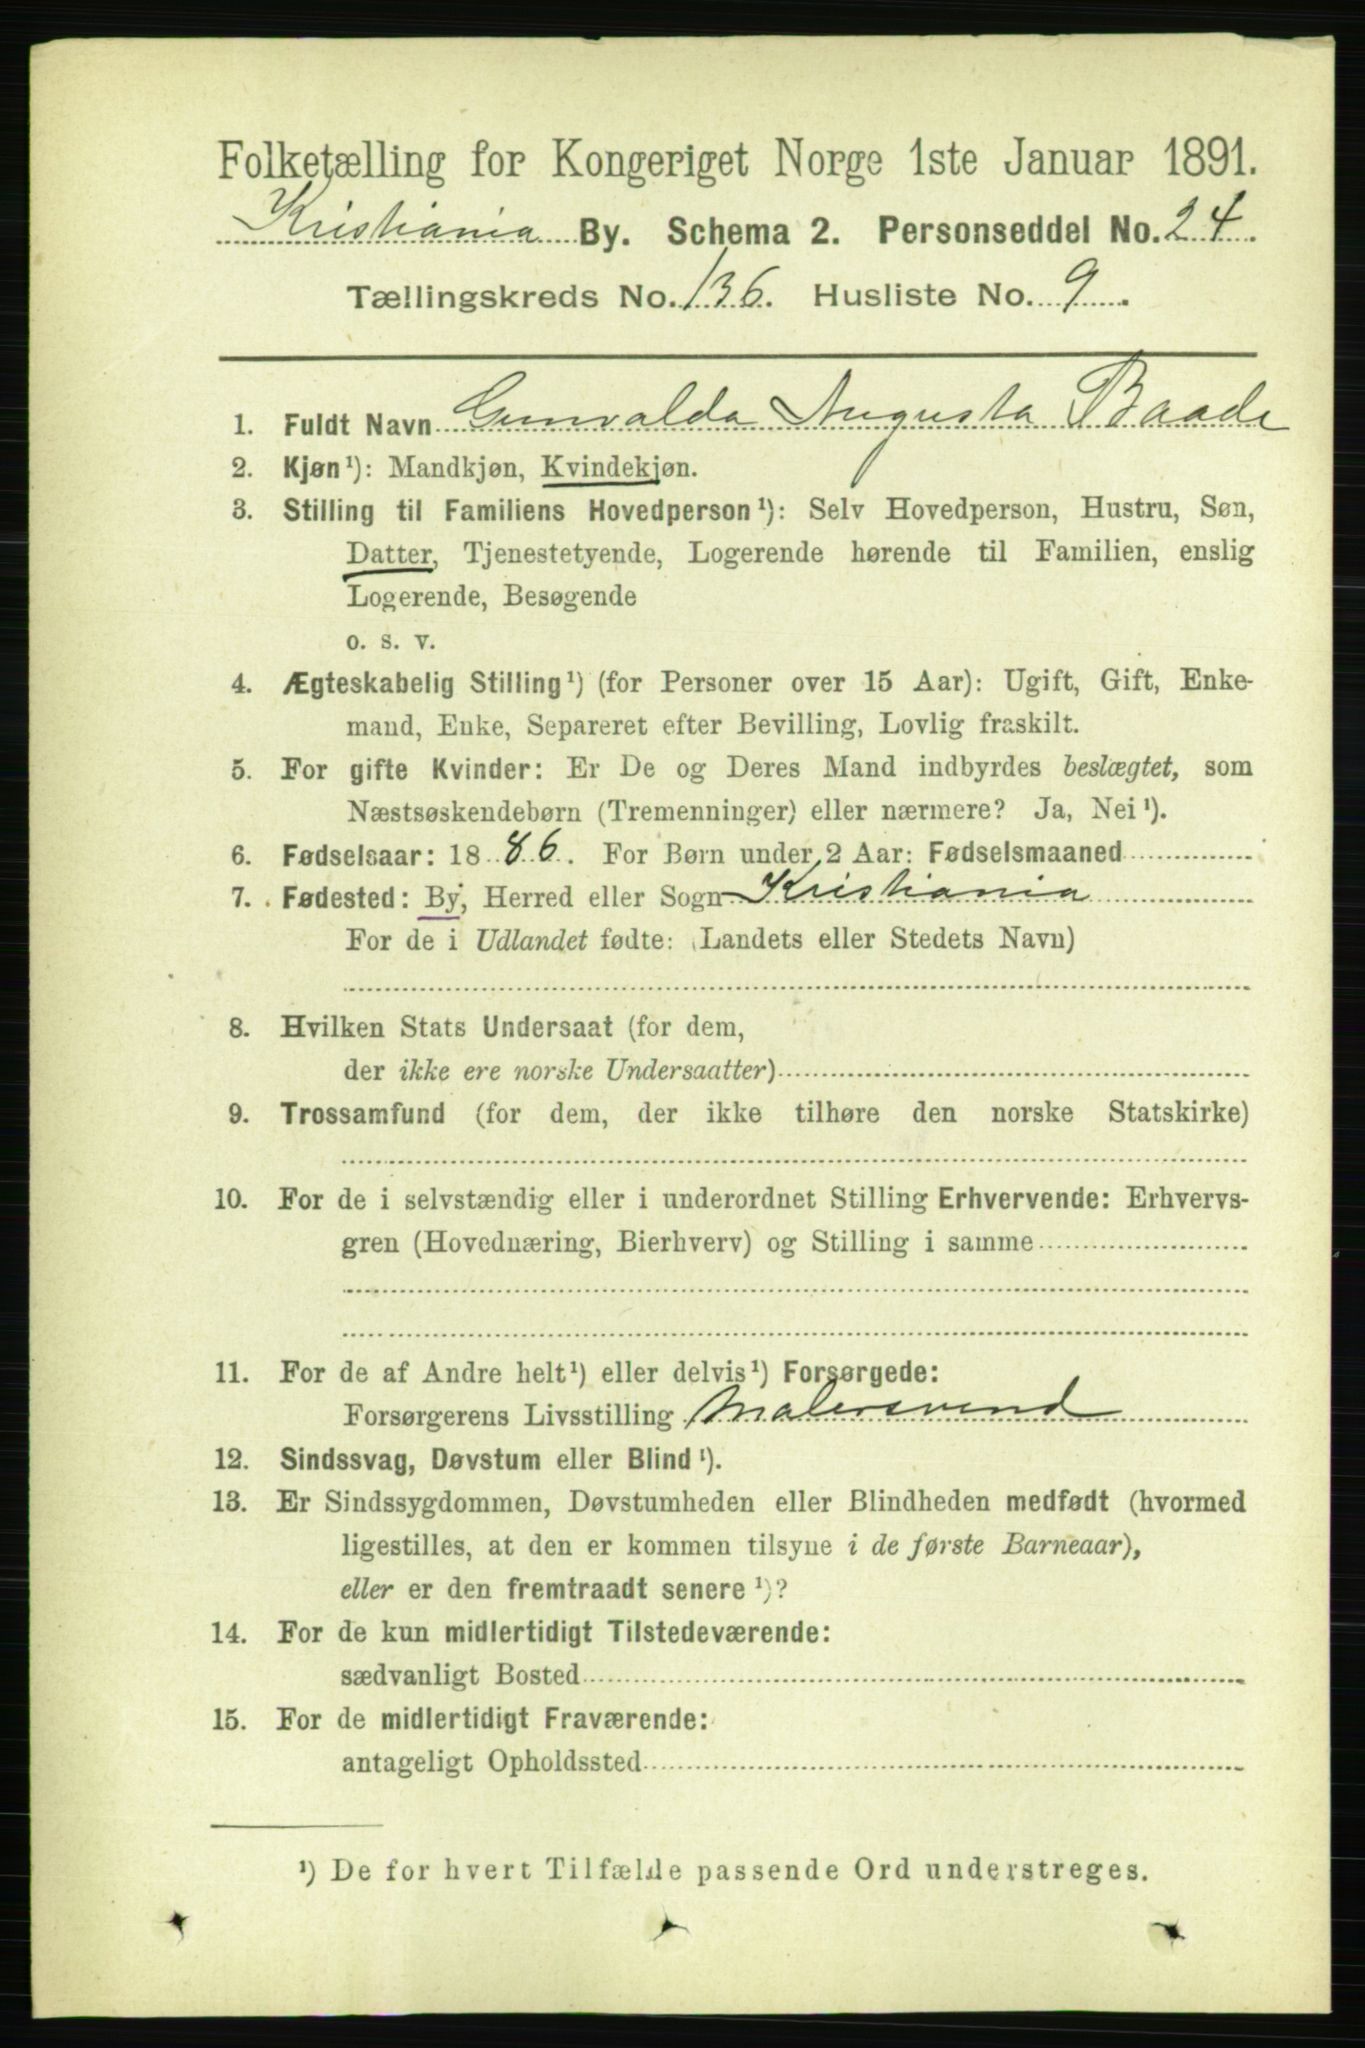 Folketælling for Kongeriget Norge 1ste Januar 1891.
Kristiania By. Schema 2. Personseddel No. 24.
Tællingskreds No. 136. Husliste No. 9.
1. Fuldt Navn Gunvalda Augusta Baade
2. Kjøn¹): Mandkjøn, Kvindekjøn.
3. Stilling til Familiens Hovedperson¹): Selv Hovedperson, Hustru, Søn,
Datter, Tjenestetyende, Logerende hørende til Familien, enslig
Logerende, Besøgende
o. s. v.
4. Ægteskabelig Stilling¹) (for Personer over 15 Aar): Ugift, Gift, Enke-
mand, Enke, Separeret efter Bevilling, Lovlig fraskilt.
5. For gifte Kvinder: Er De og Deres Mand indbyrdes beslægtet, som
Næstsøskendebørn (Tremenninger) eller nærmere? Ja, Nei¹).
6. Fødselsaar: 1886. For Børn under 2 Aar: Fødselsmaaned
7. Fødested: By, Herred eller Sogn Kristiania
For de i Udlandet fødte: (Landets eller Stedets Navn)
8. Hvilken Stats Undersaat (for dem,
der ikke ere norske Undersaatter)
9. Trossamfund (for dem, der ikke tilhøre den norske Statskirke)
10. For de i selvstændig eller i underordnet Stilling Erhvervende: Erhvervs-
gren (Hovednæring, Bierhverv) og Stilling i samme
11. For de af Andre helt¹) eller delvis¹) Forsørgede:
Forsørgerens Livsstilling Malersvend
12. Sindssvag, Døvstum eller Blind¹).
13. Er Sindssygdommen, Døvstumheden eller Blindheden medfødt (hvormed
ligestilles, at den er kommen tilsyne i de første Barneaar),
eller er den fremtraadt senere¹)?
14. For de kun midlertidigt Tilstedeværende:
sædvanligt Bosted
15. For de midlertidigt Fraværende:
antageligt Opholdssted
¹) De for hvert Tilfælde passende Ord understreges.